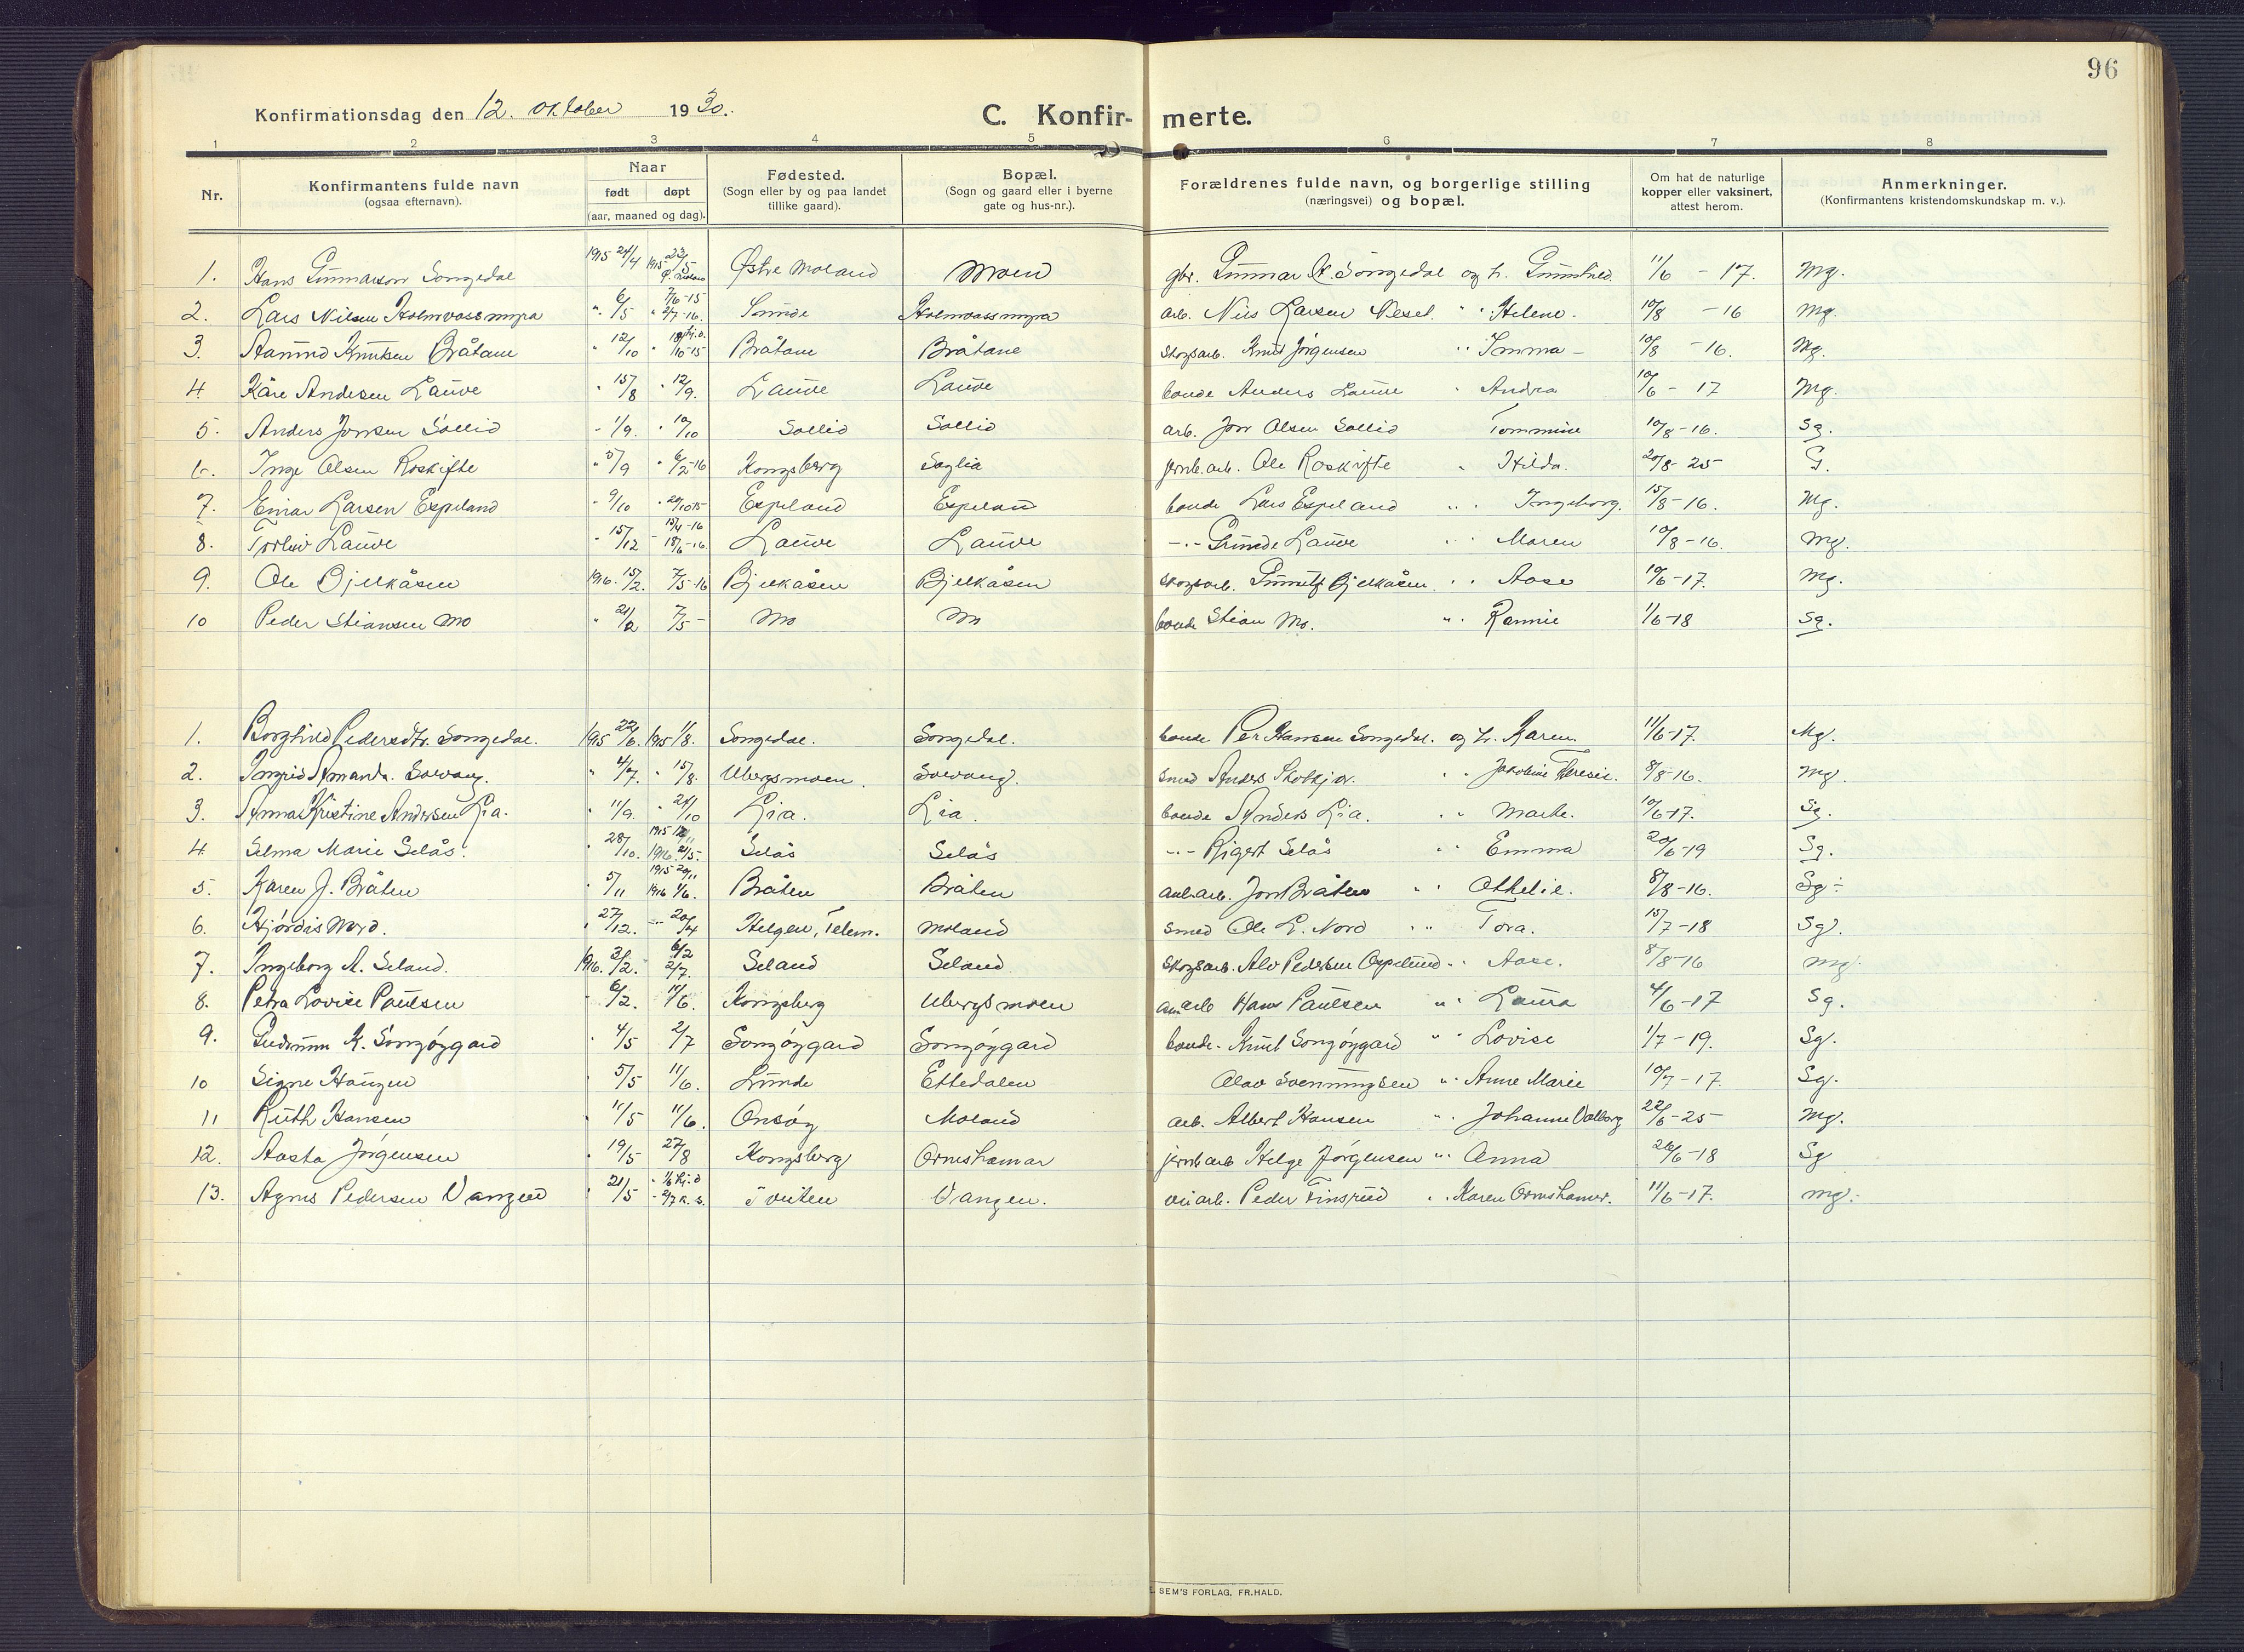 96
Konfirmationsdag den 12. oktober 1930.
C. Konfir- merte.
1 2 3 4 5 6 7 8
Nr. Konfirmantens fulde navn (ogsaa efternavn). Naar født døpt (aar, maaned og dag). Fødested. (Sogn eller by og paa landet tillike gaard). Bopæl. (Sogn og gaard eller i byerne gate og hus-nr.). Forældrenes fulde navn, og borgerlige stilling (næringsvei) og bopæl. Om hat de naturlige kopper eller vaksinert, attest herom. Anmerkninger. (Konfirmantens kristendomskundskap m. v.).
1. Hans Gunnarson Songedal 1915 24/4 1915 23/5 Ø. Moland Østre Moland Moen gbr. Gunnar Songedal og h. Gunhild. 11/6 - 17. Mg.
2. Lars Nilsen Holmvassmyra " 6/5 7/6-15 " 2/7-16. Sunde Holmvassmyra arb. Nils Larsen Neset. " " Helene. 10/8 - 16 Mg.
3. Aamund Knutsen Bråtane " 12/10 " 18/10-15 Bråtane Bråtane skogsarb. Knut Jörgensen " " Imma - 10/8 - 16. Mg.
4. Kåre Andersen Lauve " 15/8 " 12/9. Lauve Lauve bonde Anders Lauve " Andrea 10/6 - 17 Mg.
5. Anders Jonsen Sollid " 1/9. " 10/10 Sollid Sollid arb. Jon Olsen Sollid Tommine 10/8-16. Sg.
6. Inge Olsen Roskifte " 5/9 " 6/2-16 Kongsberg Saglia jernb.arb. Ole Roskifte " Hilda. 20/8-25 G.
7. Einar Larsen Espeland " 9/10 " 24/10 15 Espeland Espeland bonde Lars Espeland " " Ingeborg. 15/8-16. Mg.
8. Torleiv Lauve " 15/12 " 18/6-16. Lauve Lauve -"- Grunde Lauve " " Maren 10/8-16. Mg.
9. Ole Bjelkåsen 1916. 15/2. 7/5-16 Bjelkåsen Bjelkåsen skogsarb. Gunulf Bjelkåsen. " " Aase 10/6-17. Mg.
10 Peder Stiansen Mo " 21/2 7/5 - Mo Mo bonde Stian Mo. " " Rannie 1/6-18 Sg.
1. Borghild Pedersdtr. Songedal. 1915 22/6. 1915 1/8. Songedal. Songedal. bonde Per Hansen Songedal. og h. Karen. 11/6-17. Mg.
2. Ingrid Amanda. Solvang. " 4/7. " 15/8. Ubergsmoen. Solvang. smed Anders " " Jakobine Teresie. 8/8-16. Mg.
3. Anna Kristine Andersen Lia. " 11/9. " 24/10 Lia. Lia. bonde Anders Lia. " " Marte. 10/6-17. Sg.
4. Selma Marie Selås. " 28/10. 1916 21/5. Selås Selås -"- Sigert Selås " " Emma 20/6-19 Sg.
5. Karen J. Bråten " 5/11 1915 20/11 1916 1/6. Bråten Bråten anl.arb. Jon Bråten " " Othelie. 8/8-16. Sg -
6. Hjördis Nord. " 27/12. -"- 20/4 Helgen, Telem. Moland smed Ole L. Nord " " Tora. 15/7-18 Sg.
7. Ingeborg A. Seland. 1916. 3/2. 6/2 2/7. Seland Seland skogsarb. Alv Pedersen Ospelund " " Aase. 8/8-16 Mg.
8. Petra Lovise Paulsen " 6/2. 11/6. Kongsberg Ubergsmoen anl.arb Hans Paulsen " " Laura 4/6-17 Sg.
9. Gudrunn K. Songöygard " 4/5 2/7 Songöygard Songöygard bonde. Knut Songöygard " " Lovise 1/7-19. Sg.
10 Signe Haugen " 5/5 11/6. Lunde Ettedalen Olav Svenningsen " " Anne Marie 10/7-17. Sg.
11 Ruth Hansen " 11/5 11/6. Onsöy Moland arb. Albert Hansen " " Johanne Valborg 22/6-25 Mg.
12. Aasta Jörgensen " 19/5 27/8 Kongsberg Ormshamar jernb arb Helge Jörgensen " " Anna 26/6-18 Sg
13. Agnes Pedersen Vangen " 21/5 " 1/6 hj.d - 2/7 k. s. Tveiten Vangen. vei arb. Peder Finsrud " " Karen Ormshamar. 11/6-17. Mg. -
SEM'S FORLAG, FR. HALD.